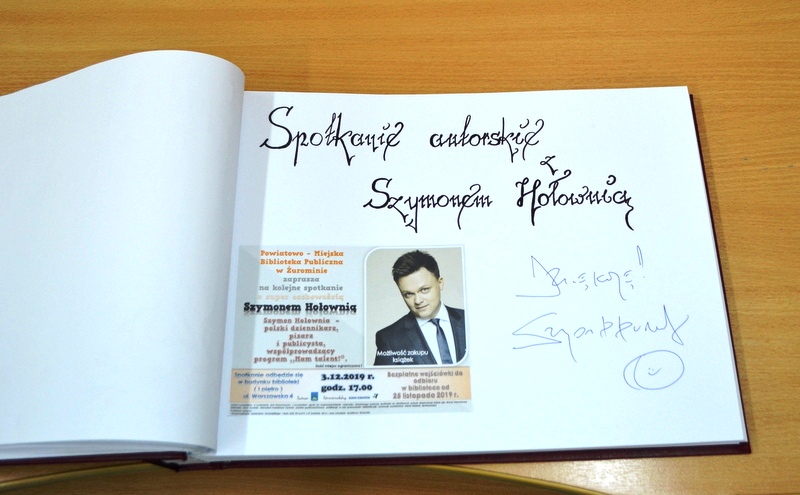 Spotkanie autorskie
z
Szymonem Hołownią
Powiatowo – Miejska
Biblioteka Publiczna
w Żurominie
zaprasza
na kolejne spotkanie
z super osobowością
Szymonem Hołownią
Szymon Hołownia –
polski dziennikarz,
pisarz
i publicysta,
współprowadzący
program ,,Mam talent!".
Ilość miejsc ograniczona!
Możliwość zakupu
książek
Spotkanie odbędzie się
w budynku biblioteki
( I piętro )
ul. Warszawska 4
3.12.2019 r.
godz. 17.00
Bezpłatne wejściówki do
odbioru
w bibliotece od
25 listopada 2019 r.
Dziękuję!